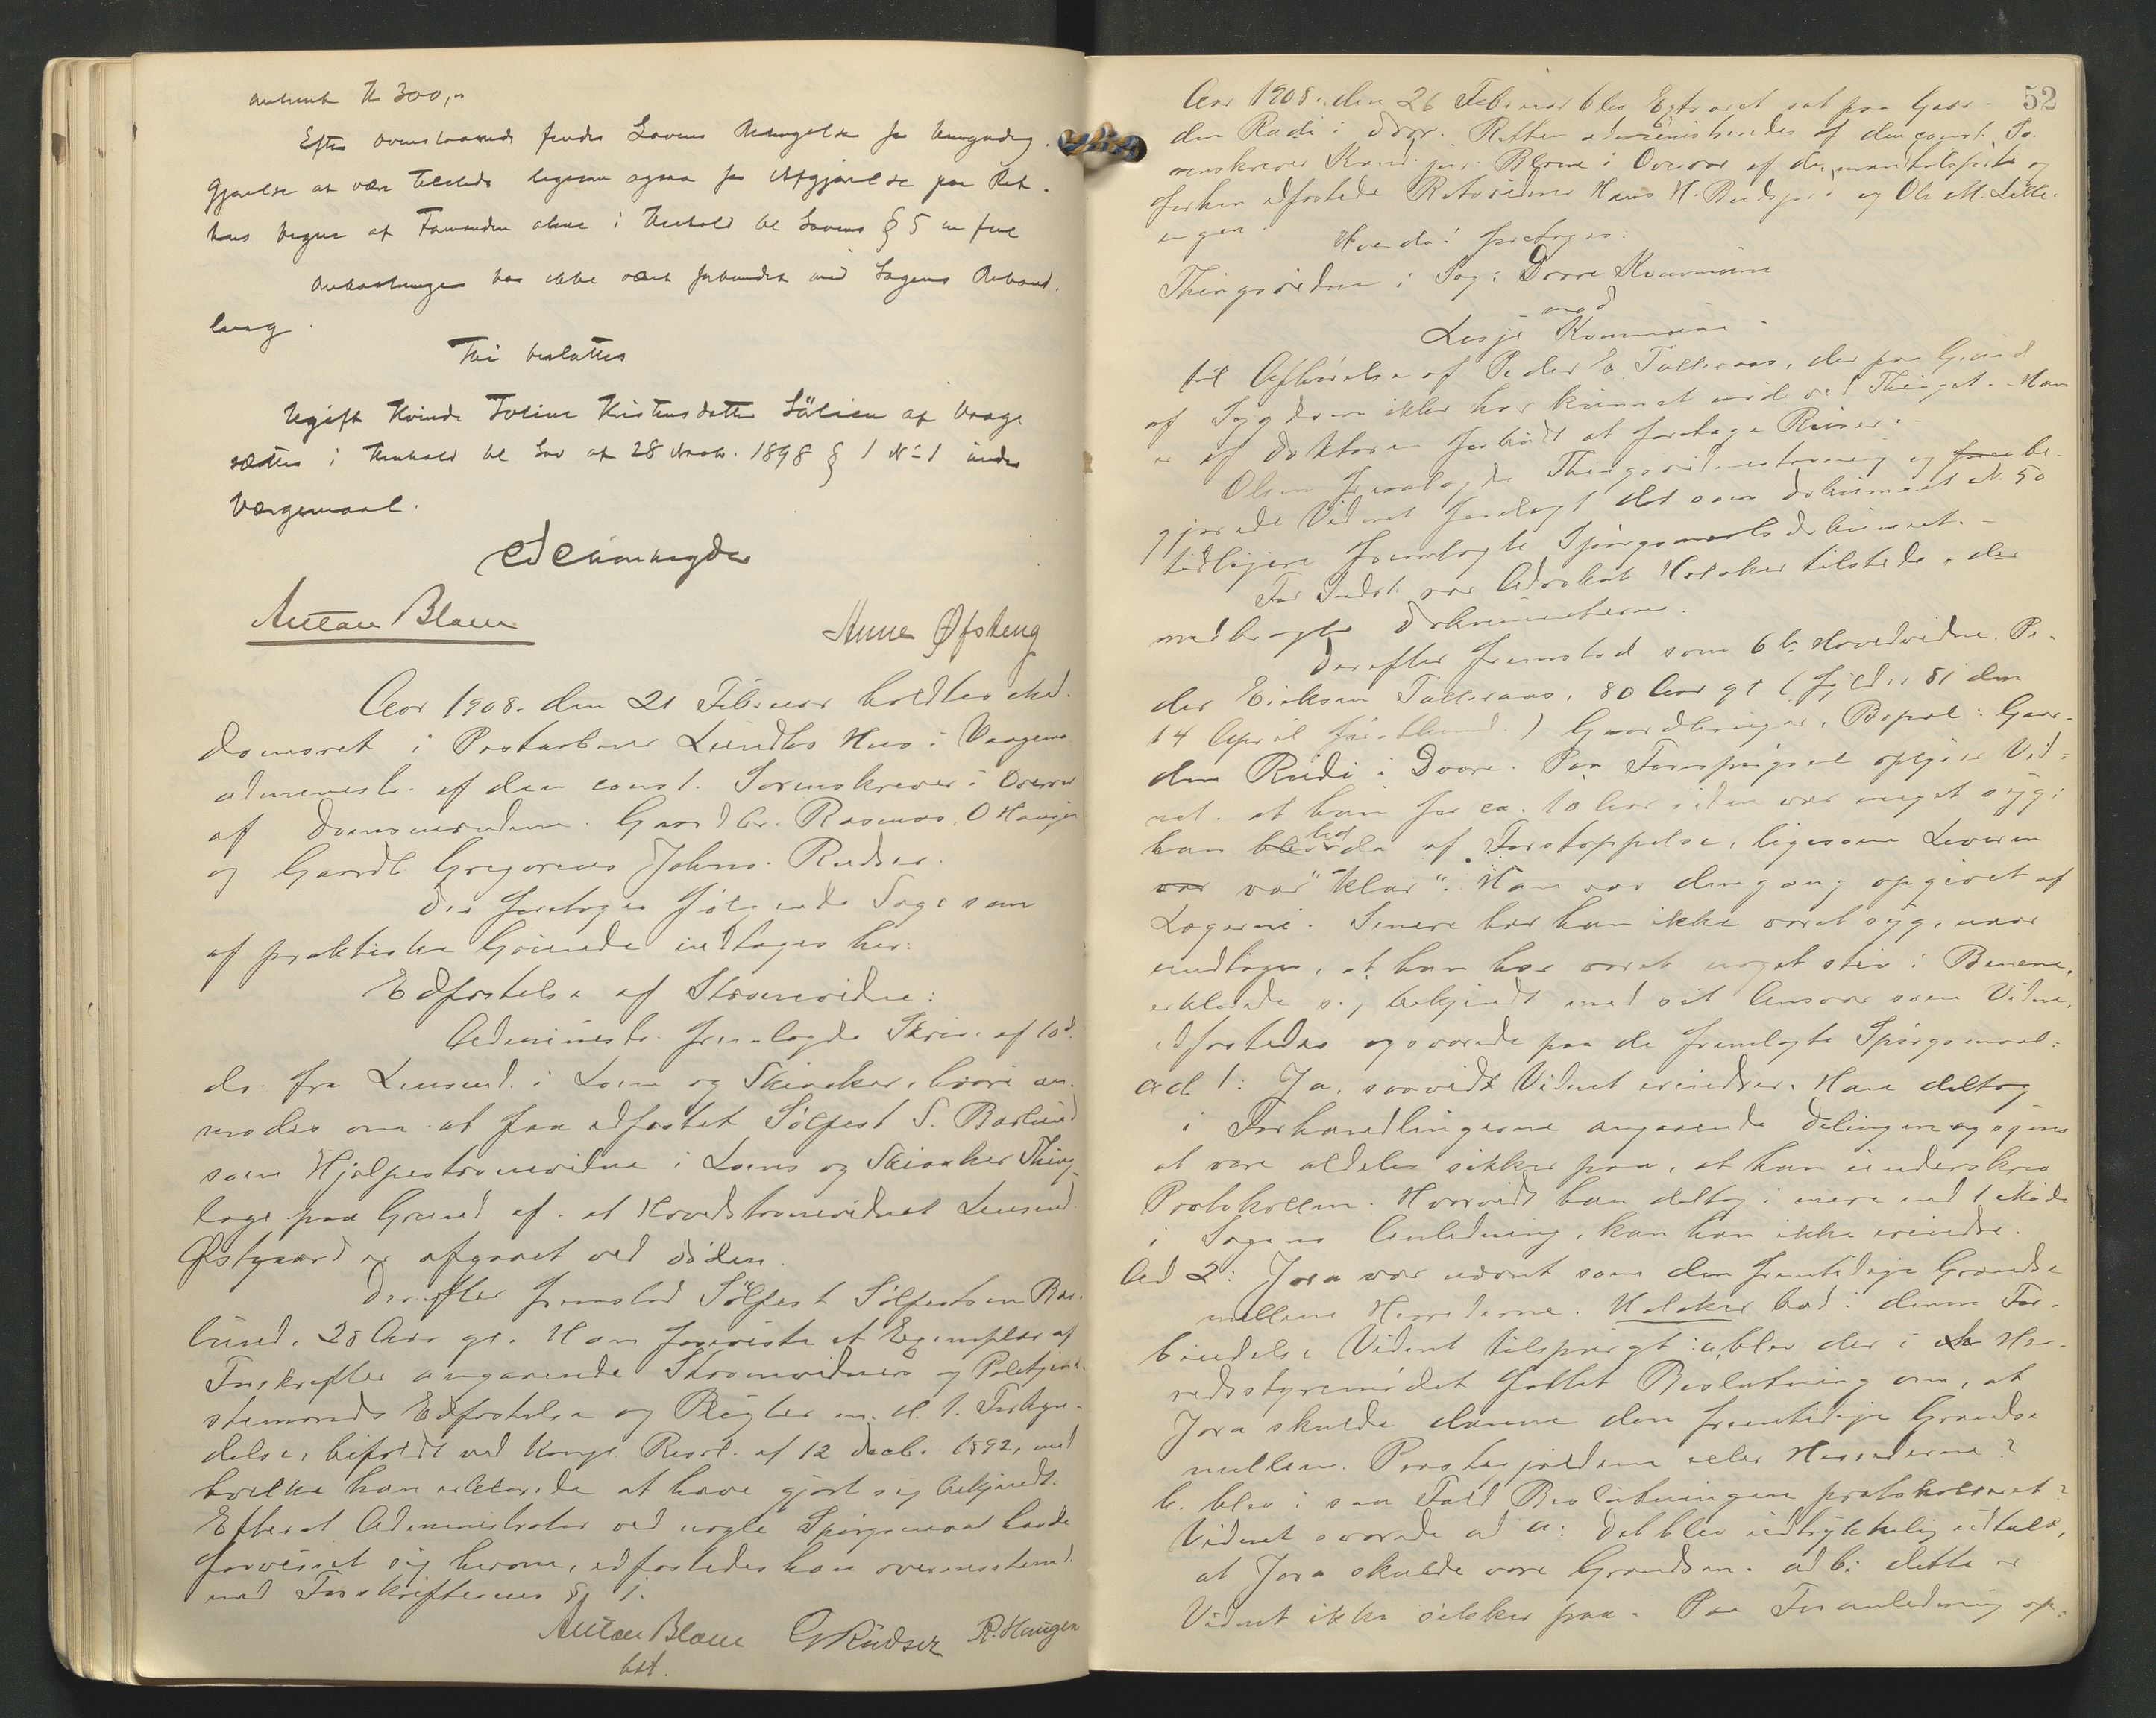 antat Kr 300,-
Efter ovenstaaende findes Lovens Betingelser for Umyndig-
gjørelse at være tilstede ligesom ogsaa for Afgjørelse paa Ret-
tens Vegne af Formanden alene i Henhold til Lovens § 5 in fine
Omkostninger har ikke været forbundet med Sagens Behand-
ling.
Thi besluttes
Ugift Kvinde Toline Kristensdatter af Vaage
sættes i Henhold til Lov af 28 Novb. 1898 § 1 No 1 under
Værgemaal.
Anton Blom
Anne Øfsteng
Aar 1908. den 21 Februar holdtes Med-
domsret i Postaabner Lundbs Hus i Vaagemo
administr. af den const. Sorenskriver i Overvær
af Domsmændene Gaardbr. Rasmus O Haugen
og Gaardb. Gregorius Johns. Rudser.
Der foretoges følgende Sag som
af praktiske Grunde indtages her:
Edfæstelse af Stævnevidne:
Administr. fremlagde Skriv. af 10 d.
ds. fra Lensmd. i Lom og Skiaaker, hvori an-
modes om at faa edfæstet Sølfest S. Barlund
som Hjælpestævnevidne i Loms og Skiaaker Thing-
lage paa Grund af at Hovedstævnevidnet Lensmd.
Østgaard er afgaaet ved Døden.
Derefter fremstod Sølfest Sølfestsen Bar-
lund, 28 Aar gl. Han foreviste et Exemplar af
Forskrifter angaaende Stævnevidners og Politjene-
stemænds Edfæstelse og Pligter m. v. 1. Forkyn-
delse, bifaldt ved Kongl. Resol. af 12 Decb. 1892, med
hvilke han erklærede at have gjort sig bekjendt.
Efterat Administrator ved nogle Spørgsmaal havde
forvisset sig herom, edfæstedes han overensstem.
med Forskrifternes § 1.
Anton Blom GRudser R. Haugen
bst.
52
Aar 1908. den 26 Februar blev Extraret sat paa Gaar-
den Rudi i Dovre. Retten administreredes af den const. So-
renskriver Kand. jur. Blom i Overvær af de mandtalsførte og
forhen edfæstede Retsvidner Hans H. Budsjord og Ole M. Lille-
engen.
Hvorda! foretoges:
Thingsvidne i Sag: Dovre Kommune
mod
Lesje Kommune
til Afhørelse af Peder E. Talleraas, der paa Grund
af Sygdom ikke har kunnet møde ved Thinget. Han
er af Doktoren forbudt at foretage Reiser.
Olsen fremlagde Thingsvidnestævning og be-
gjærede Vidnet forelagt det som Dokument No 50
tidligere fremlagte Spørgsmaalsdokument.
For Indst. var Advokat Holaker tilstede, der
medbragte Dokumenterne.
Derefter fremstod som 6te Hovedvidne Pe-
der Eriksen Talleraas, 80 Aar gl (fylder 81 den
14 April førstkmd.) Gaardbruger, Bopæl: Gaar-
den Rudi i Dovre. Paa Forespørgsel opgiver Vid-
net at han for ca. 10 Aar siden var meget syg:
han led da af Forstoppelse, ligesom Leveren
var "klar". Han var dengang opgivet af
Lægerne. Senere har han ikke været syg, naar
undtages, at han har været noget stiv i Benene,
erklærede sig bekjendt med sit Ansvar som Vidne,
edfæstedes og svarede paa de fremlagte Spørgsmaal:
ad 1: Ja, saavidt Vidnet erindrer. Han deltog
i Forhandlingerne angaaende Delingen og synes
at være aldeles sikker paa, at han underskrev
Protokollen. Hvorvidt han deltog i mere end 1 Møde
i Sagens Anledning, kan han ikke erindre.
Ad 2: Jora var nævnt som den fremtidige Grændse
mellem Herrederne. Holaker bad i denne For-
bindelse Vidnet tilspurgt: a, blev der i Her-
redsstyremødet fattet Beslutning om, at
Jora skulde danne den fremtidige Grændse
mellem Præstegjældene eller Herrederne?
b. blev i saa Fald Beslutningen protokolleret?
Vidnet svarede ad a: Det blev udtrykkelig udtalt,
at Jora skulde være Grændsen. ad b: dette er
Vidnet ikke sikker paa. Paa Foranledning op-